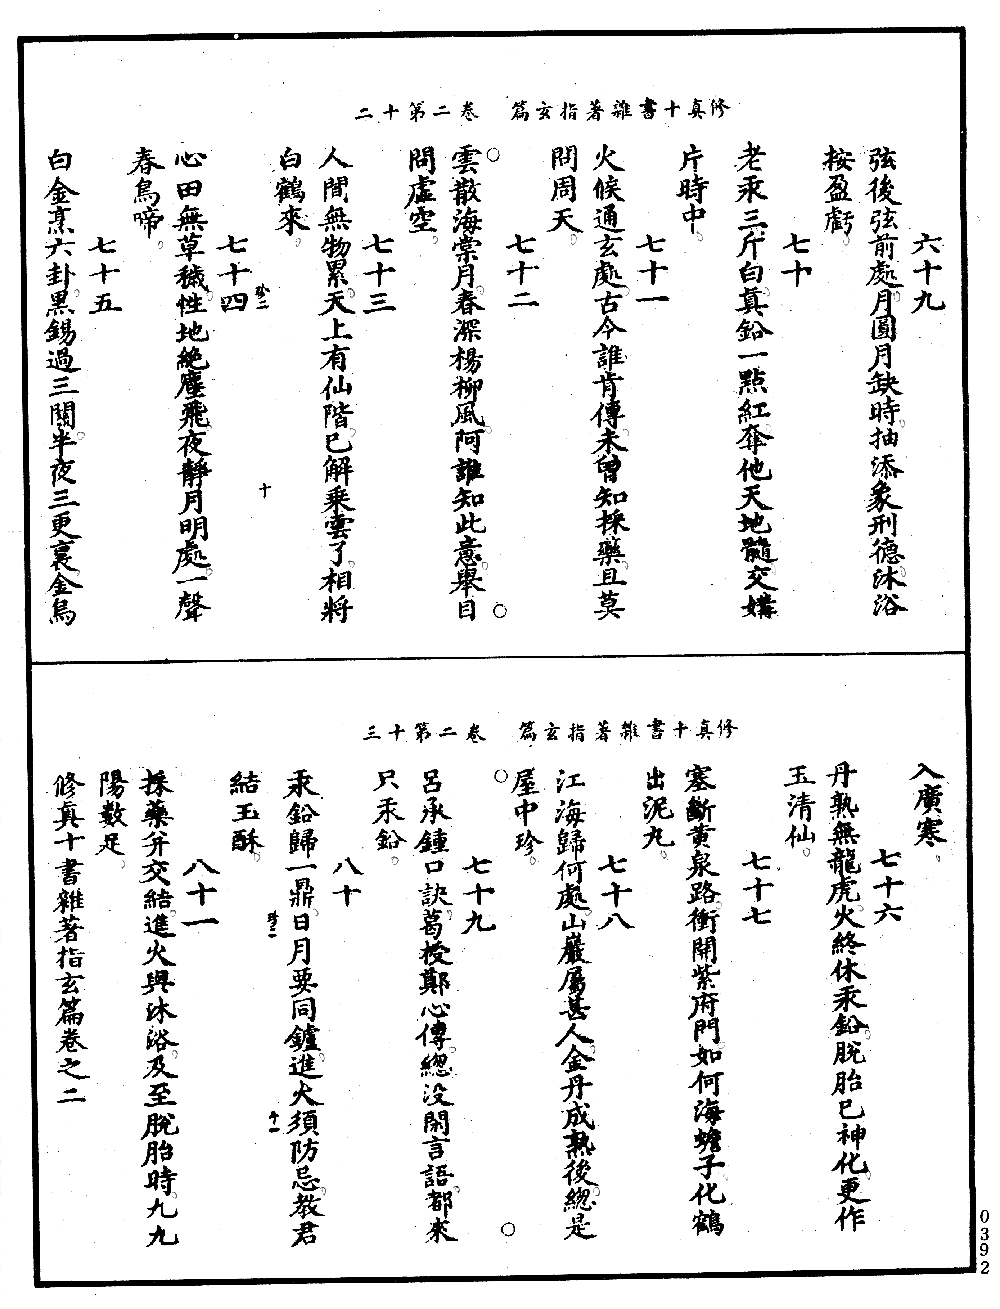 修真十書雜著指玄篇　卷二第十二
六十九
弦後弦前處。月圓月缺時。抽添象刑德。沐浴
按盈虧。
七十
老汞三斤白。真鉛一點紅。奪他天地髓。交媾
片時中。
七十一
火候通玄處。古今誰肯傳。未曾知採藥。且莫
問周天。
七十二
雲散海棠月。春深楊柳風。阿誰知此意。舉目
問虛空。
七十三
人間無物累。天上有仙階。已解乘雲了。相將
白鶴來。
珍二
十
七十四
心田無草穢。性地絕塵飛。夜靜月明處。一聲
春鳥啼。
七十五
白金烹六卦。黑錫過三關。半夜三更裏。金烏
修真十書雜著指玄篇　卷二第十三
入廣寒。
七十六
丹熟無龍虎。火終休汞鉛。脫胎已神化。更作
玉清仙。
七十七
塞斷黃泉路。衝開紫府門。如何海蟾子。化鶴
出泥丸。
七十八
江海歸何處。山巖屬甚人。金丹成熟後。總是
屋中珍。
七十九
呂承鍾口訣。葛授鄭心傳。總沒閑言語。都來
只汞鉛。
八十
汞鉛歸一鼎。日月要同鑪。進火須防忌。教君
結玉酥。
珍二
十一
八十一
採藥并交結。進火與沐浴。及至脫胎時。九九
陽數足。
修真十書雜著指玄篇卷之二
0392